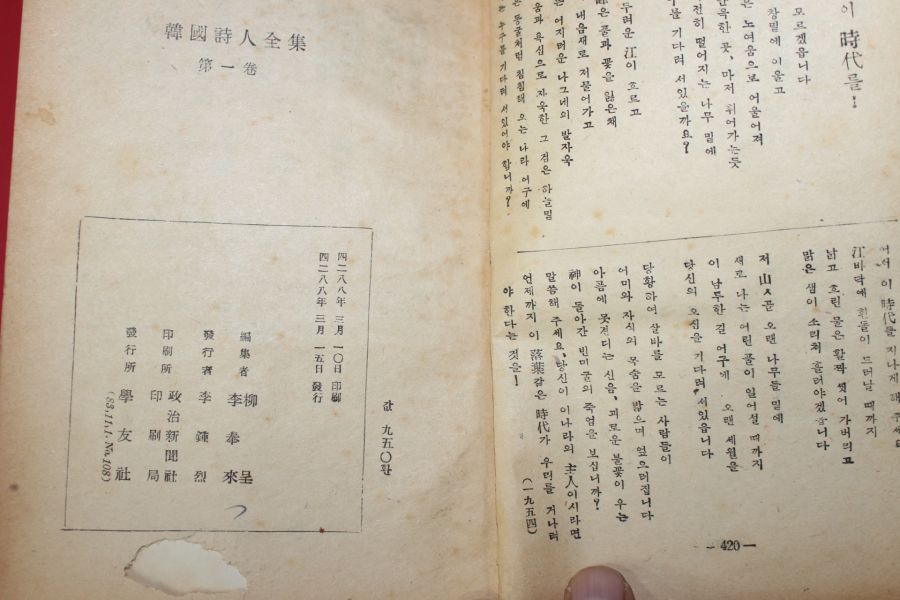 이 時代를!
모르겠읍니다
창밑에 이울고
은 노여움으로 어울어져
한 곳, 마저 휘어가는듯
전히 떨어지는 나무 밑에
를 기다려 서있을까요?
두려운 江이 흐르고
은 풀과 꽃을 잃은채
내음새로 저물어가고
는 어지러운 나그네의 발자욱
움과 욕심으로 자욱한 그 검은 하늘밑
는 동굴처럼 침침해 오는 나라 어구에
는 누구를 기다려 서있어야 합니까?
이 時代를 지나게 해 주세
江바닥에 흰돌이 드러날 때까지
낡고 흐린 물은 활짝 씻어 가버리고
맑은 샘이 소리처 흘러야겠읍니다
저 山ㅅ곧 오랜 나무들 밑에
새로 나는 어린 풀이 일어설 때까지
이 남루한 길 어구에 오랜 세월을
당신의 오심을 기다려 서있읍니다
당황하여 살바를 모르는 사람들이
어미와 자식의 목숨을 밟으며 엎으러집니다
아픔에 못견디는 신음, 괴로운 불꽃이 우는
神이 돌아간 빈미굴의 죽엄을 보십니까?
말씀해 주세요, 당신이 이나라의 主人이시라면
언제까지 이 落葉같은 時代가 우리를 거나려
야 한다는 것을!
(一九五四)
— 420 —
韓國詩人全集
第一卷
값 九五〇환
四二八八年 三月 一〇日 印刷
四二八八年 三月 一五日 發行
編集者 柳呈
李奉來
發行者 李鍾烈
印刷所 政治新聞社
印刷局
發行所 學友社
('83.11.1. No.108)